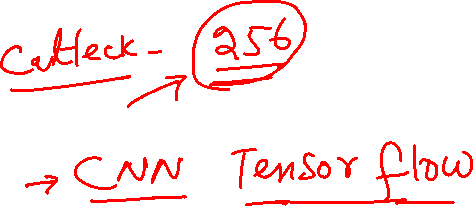 Calteck - 256
→ CNN Tensor flow